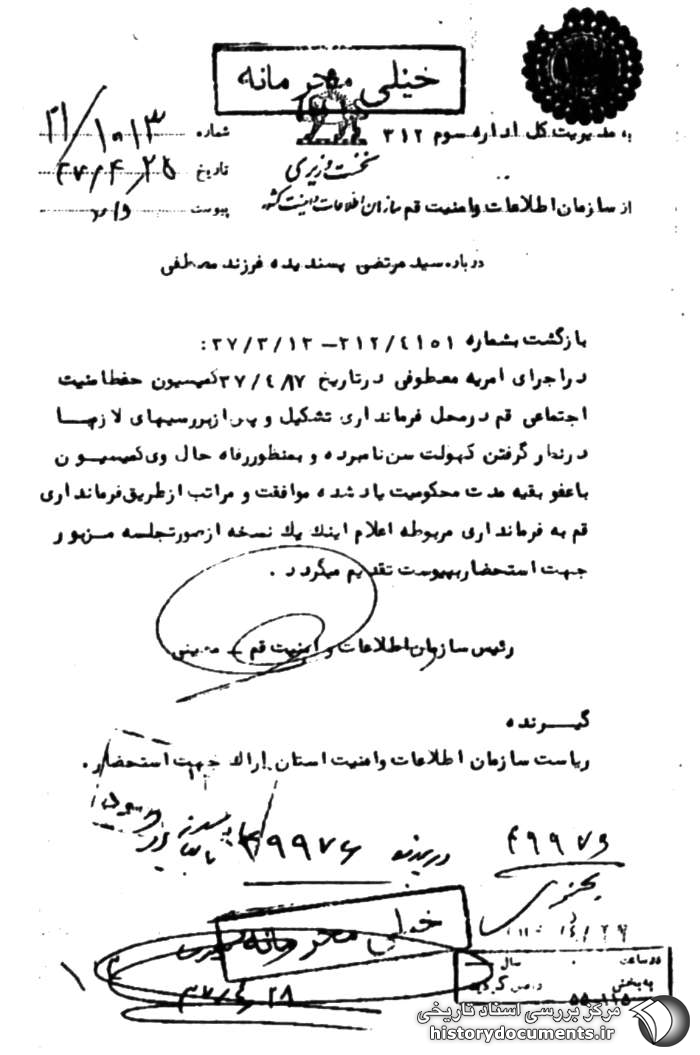 خیلی محرمانه
به مدیریت کل اداره سوم ۳۱۲
شماره ۲۱/۱۰۱۳
نخست وزیری
تاریخ ۳۷/۴/۲۵
از سازمان اطلاعات وامنیت قم سازمان اطلاعات و امنیت کشور
پیوست دارد
درباره سید مرتضی پسندیده فرزند مصطفی
بازگشت بشماره ۳۱۲/٤١٥١ – ۳۷/۳/۱۳ :
دراجرای امریه معطوفی درتاریخ کمیسیون حفظ امنیت
اجتماعی قم درمحل فرمانداری تشکیل و پس ازبررسیهای لازم با
درنظر گرفتن کهولت سن نامبرده و بمنظور رفاه حال وی کمیسیون
باعفو بقیه مدت محکومیت یاد شده موافقت و مراتب ازطریق فرمانداری
قم به فرمانداری مربوطه اعلام اینک یک نسخه ازصورتجلسه مزبور
جهت استحضار بپیوست تقدیم میگردد .
رئیس سازمان اطلاعات و امنیت قم – معینی
گیرنده
ریاست سازمان اطلاعات وامنیت استان اراک جهت استحضار .
۴۹۹۷۶
۴۹۹۷۶
خیلی محرمانه
ساعت
سال
به بخش
۳۷/۴/۲۸
مرکز بررسی اسناد تاریخی
historydocuments.ir